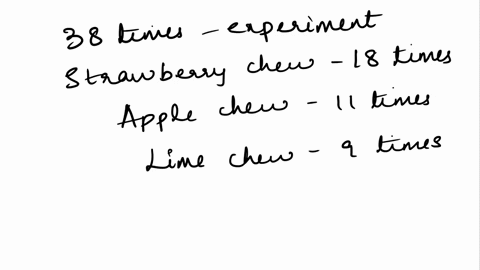 38 times - experiment
Strawberry chew - 18 times
Apple chew - 11 times
Lime chew - 9 times